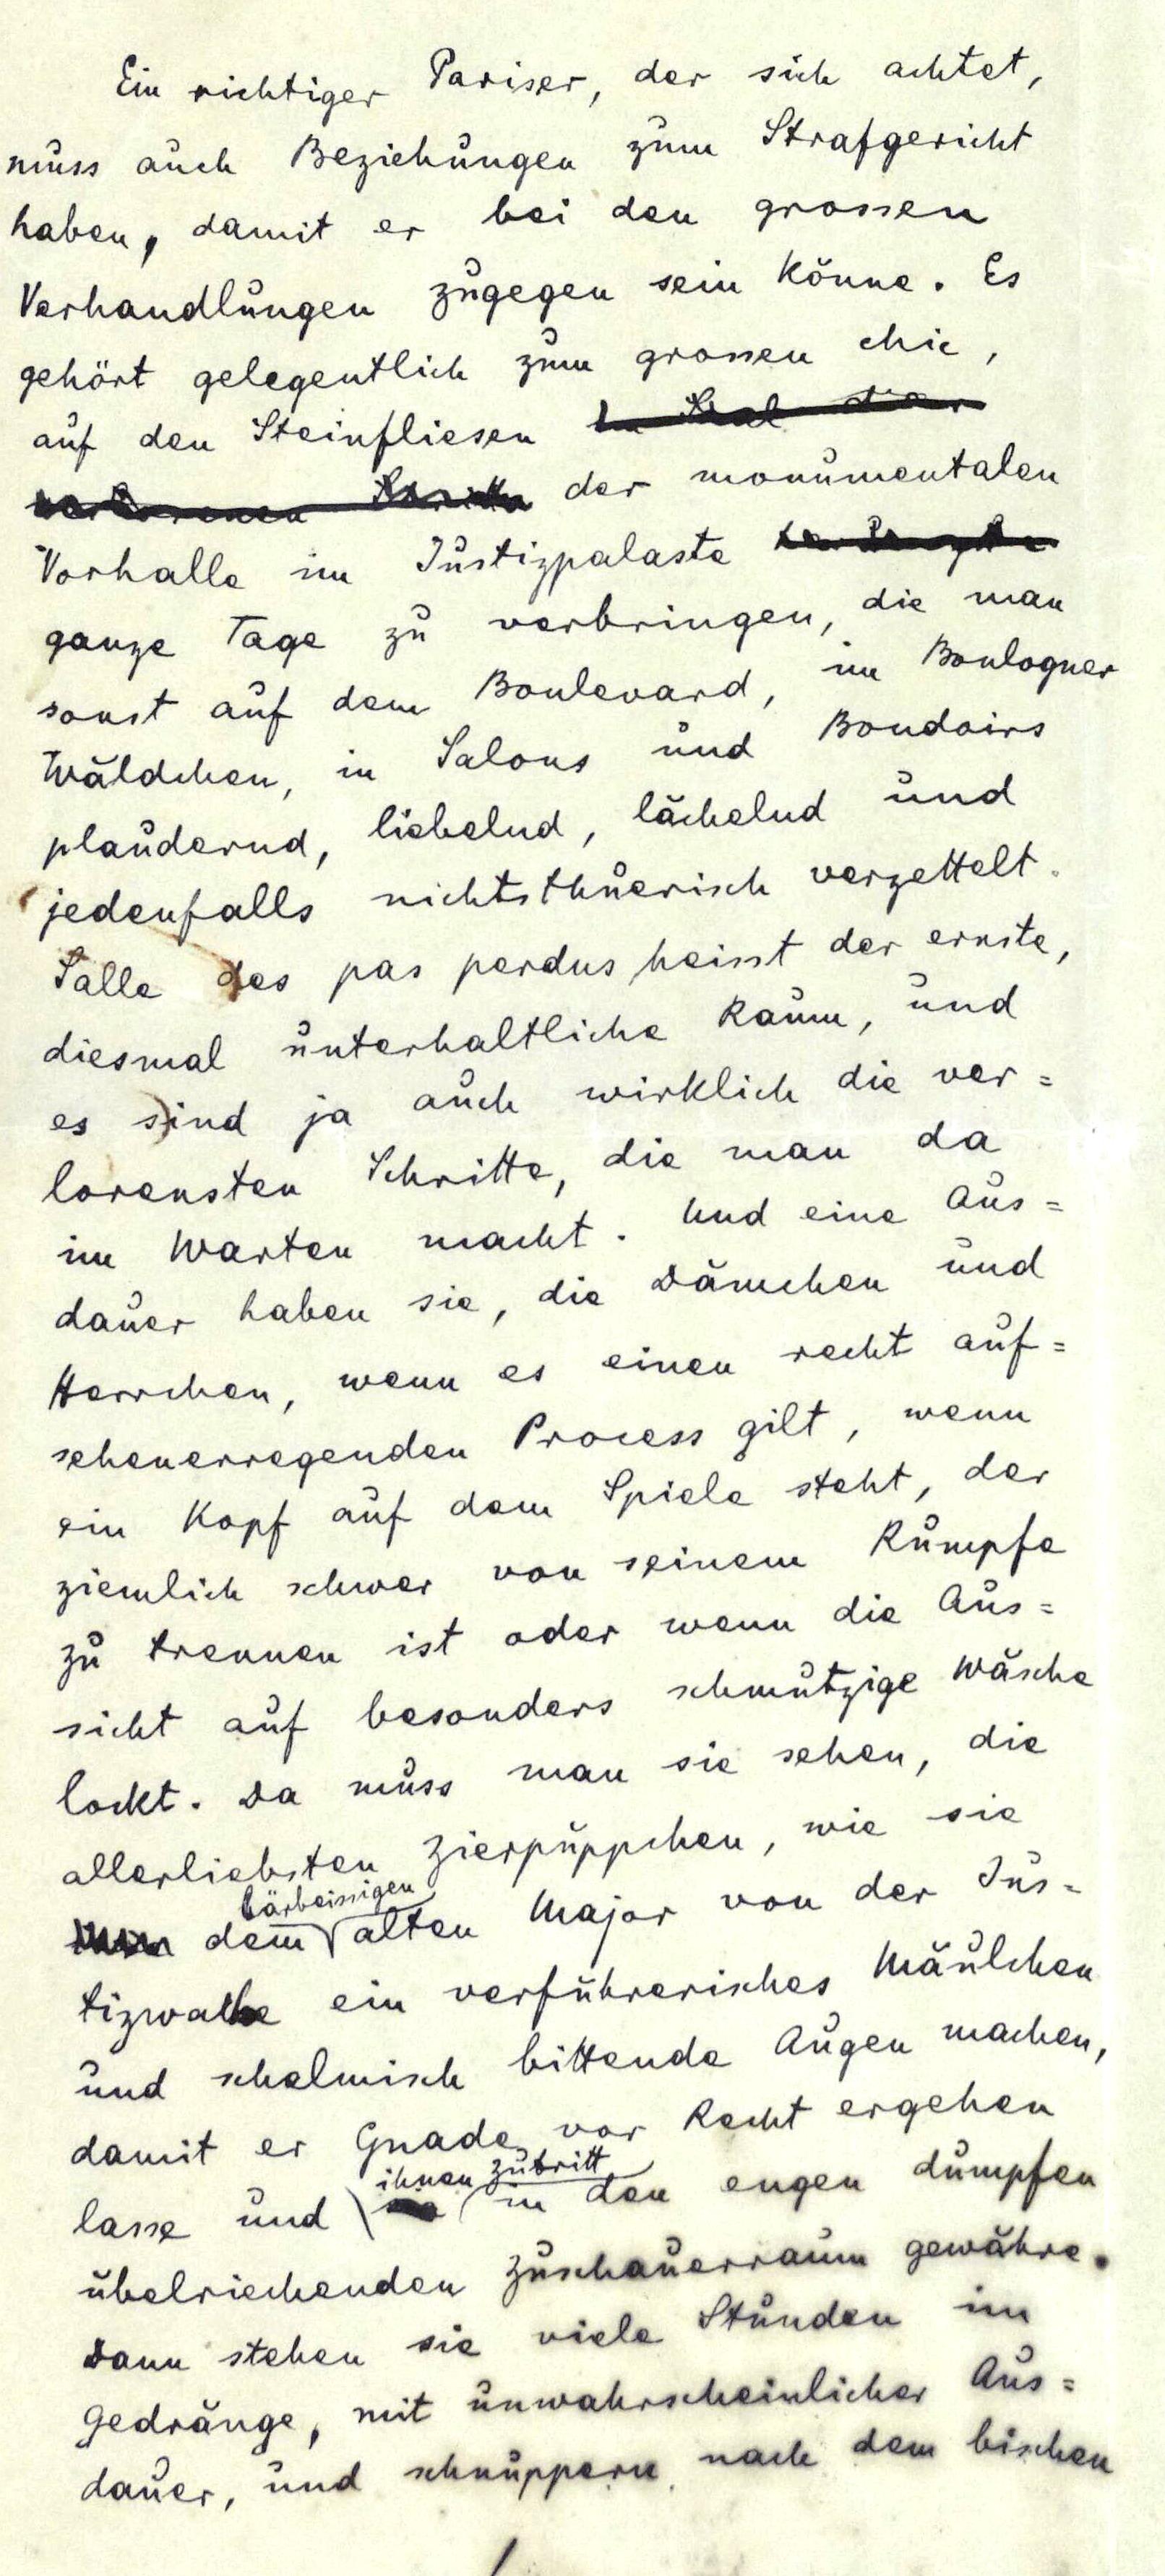 Ein richtiger Pariser, der sich achtet,
muss auch Beziehungen zum Strafgericht
haben, damit er bei den grossen
Verhandlungen zugegen sein könne. Es
gehört gelegentlich zum grossen chic,
auf den Steinfliesen
der monumentalen
Vorhalle im Justizpalaste
ganze Tage zu verbringen, die man
sonst auf dem Boulevard, im Boulogner
Wäldchen, in Salons und Boudoirs
plaudernd, liebelnd, lächelnd und
jedenfalls nichtsthuerisch verzettelt.
Salle des pas perdus heisst der ernste,
diesmal unterhaltliche Raum, und
es sind ja auch wirklich die ver=
lorensten Schritte, die man da
im Warten macht. Und eine Aus=
dauer haben sie, die Dämchen und
Herrchen, wenn es einen recht auf=
sehenerregenden Process gilt, wenn
ein Kopf auf dem Spiele steht, der
ziemlich schwer von seinem Rumpfe
zu trennen ist oder wenn die Aus=
sicht auf besonders schmutzige Wäsche
lockt. Da muss man sie sehen, die
allerliebsten Zierpüppchen, wie sie
bärbeissigen
dem alten Major von der Jus=
tizwache ein verführerisches Mäulchen
und schelmisch bittende Augen machen,
damit er Gnade vor Recht ergehen
ihnen Zutritt
lasse und in den engen dumpfen
übelriechenden Zuschauerraum gewähre.
Dann stehen sie viele Stunden im
Gedränge, mit unwahrscheinlicher Aus=
dauer, und schnuppern nach dem bischen